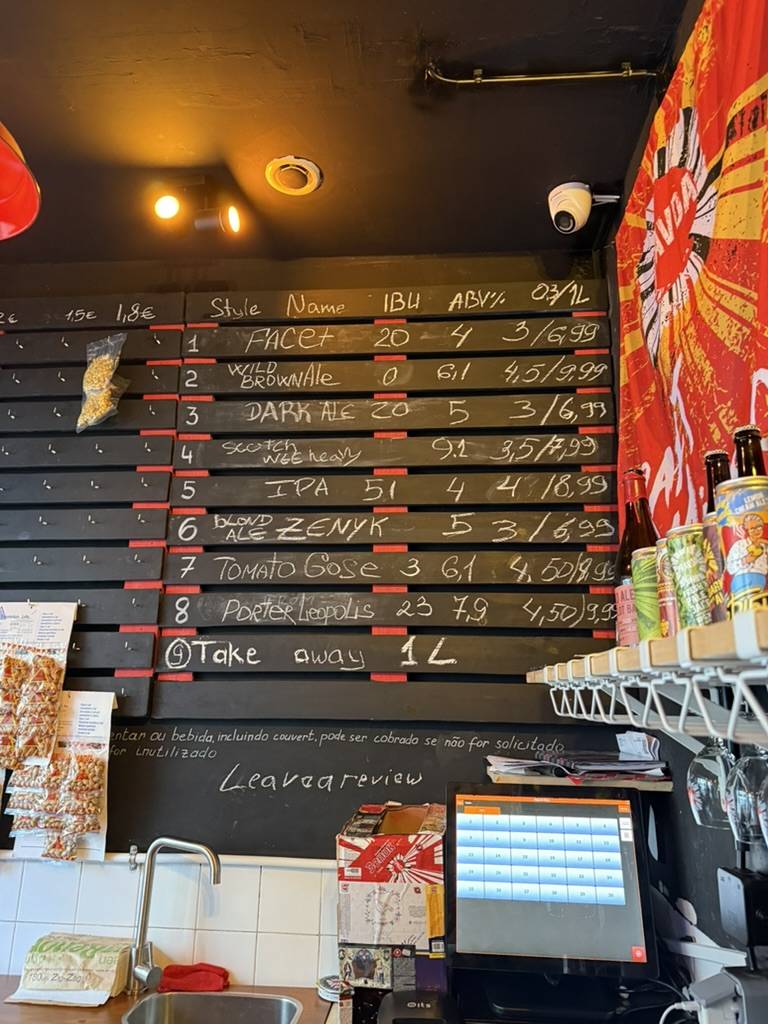 1,5€ 1,8€
Style Name IBU ABV% 0,3/1L
1 FACET 20 4 3/6,99
2 WILD BROWN Ale 0 6,1 4,5/9,99
3 DARK ALE 20 5 3/6,99
4 SCOTCH WEE heavy 9.1 3,5/7,99
5 IPA 51 4 4/8,99
6 BLOND ALE ZENYK 5 3/6,99
7 TOMATO GOSE 3 6,1 4,50/9,99
8 PORTER Leopolis 23 7,9 4,50/9,99
9 Take away 1L
entar ou bebida, incluindo couvert, pode ser cobrado se não for solicitado
for inutilizado
Leavaareview
VDA
LEMON
CREAM ALE
Zig-Zag
oits